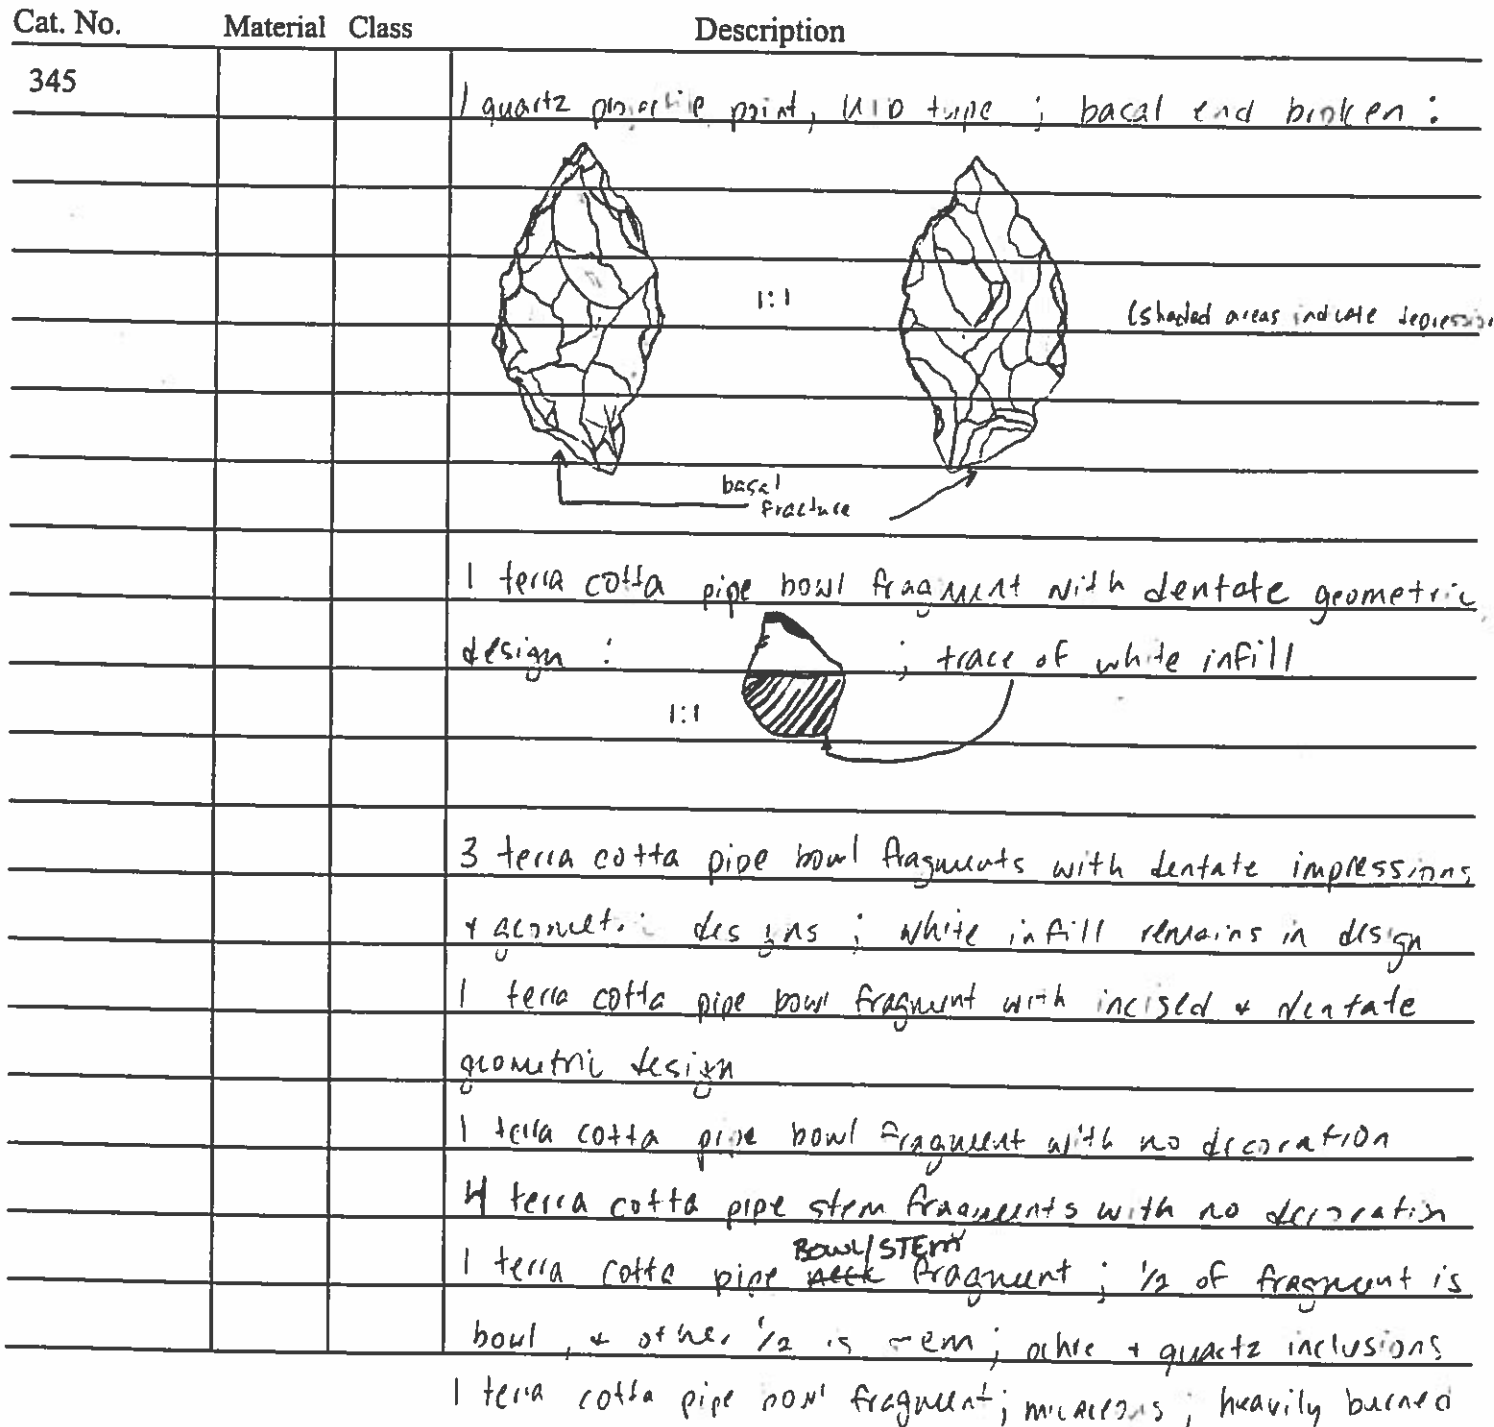 Cat. No. Material Class Description
345
1 quartz projectile point, UID type ; basal end broken :
1:1
(shaded areas indicate depression
basal
fracture
1 terra cotta pipe bowl fragment with dentate geometric
design : ; trace of white infill
1:1
3 terra cotta pipe bowl fragments with dentate impressions
+ geometric designs ; white infill remains in design
1 terra cotta pipe bowl fragment with incised + dentate
geometric design
1 terra cotta pipe bowl fragment with no decoration
4 terra cotta pipe stem fragments with no decoration
BOWL/STEM
1 terra cotta pipe neck fragment ; 1/2 of fragment is
bowl, + other 1/2 is stem ; ochre + quartz inclusions
1 terra cotta pipe bowl fragment ; micaceous ; heavily burned